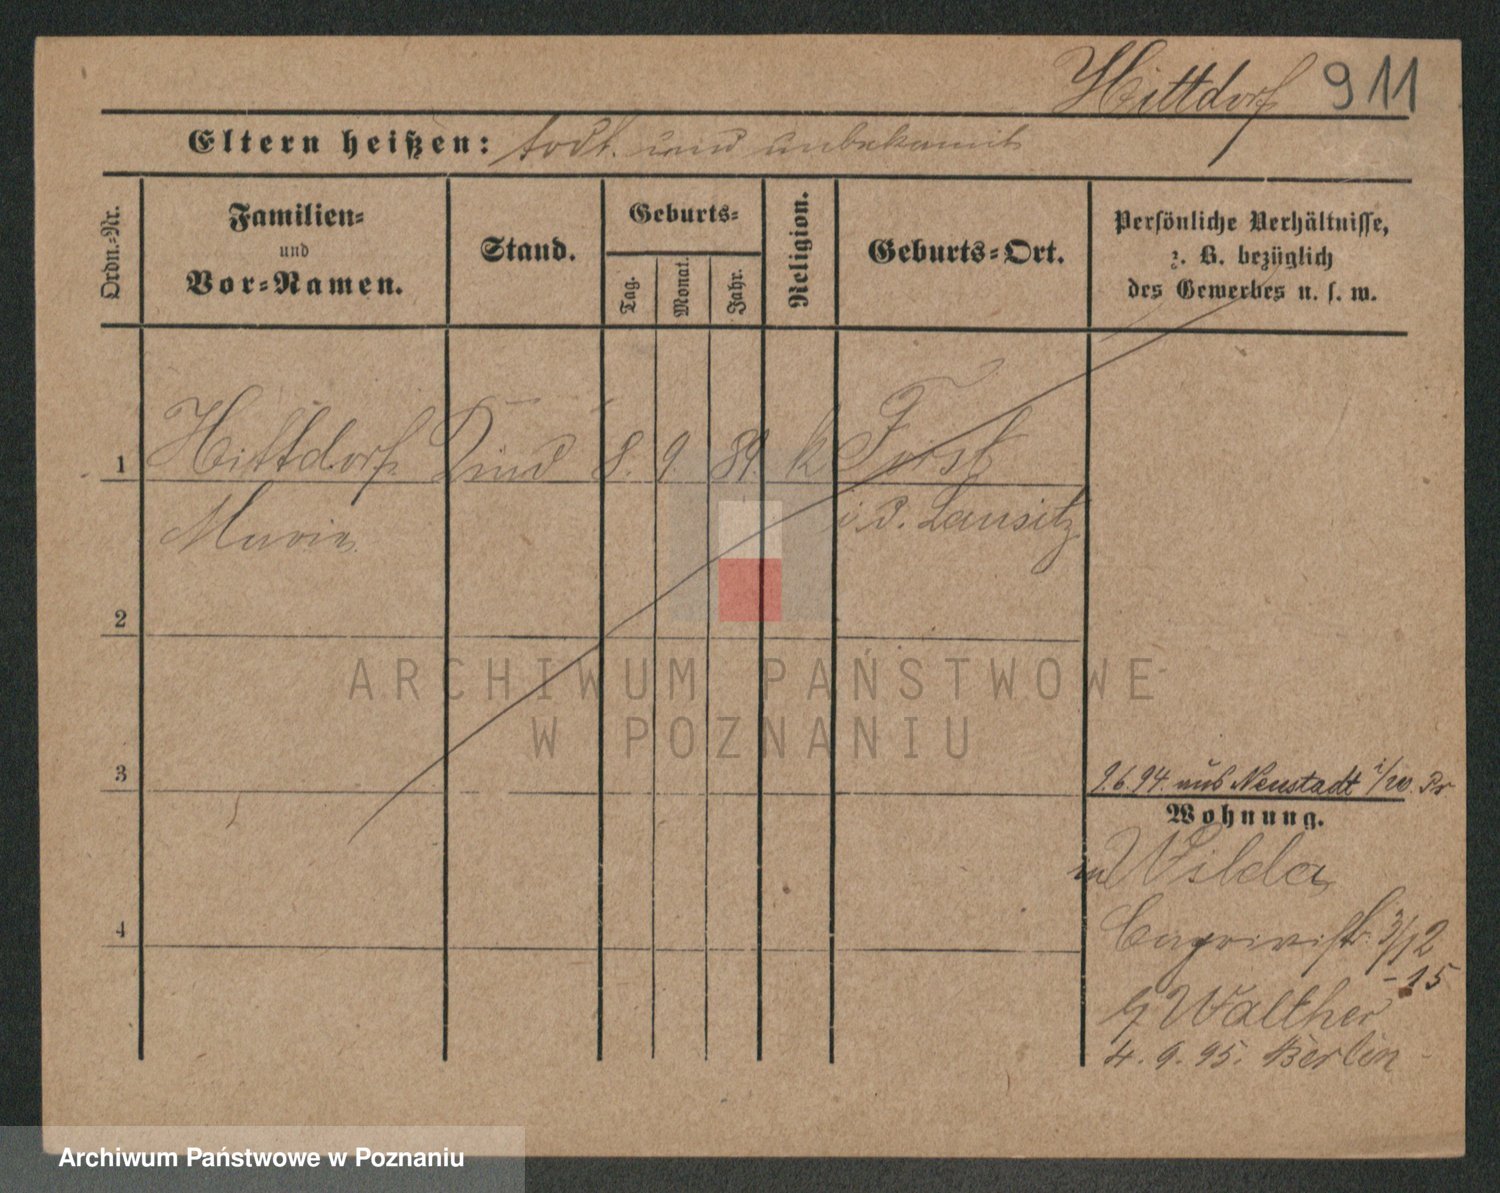 Hittdorf 911
Eltern heißen: todt und unbekannt
Ordn.-Nr.
Familien-
und
Vor-Namen.
Stand.
Geburts-
Tag.
Monat.
Jahr.
Religion.
Geburts-Ort.
Persönliche Verhältnisse,
z. B. bezüglich
des Gewerbes u. s. w.
1 Hittdorf Kind 8. 9. 89. k Forst
Marie i. d. Lausitz
2
3
4
9.6.94. aus Neustadt i/W. Pr
Wohnung.
in Wilda
3/12
-15
Walther
4. 9. 95. Berlin
ARCHIWUM PAŃSTWOWE
W POZNANIU
Archiwum Państwowe w Poznaniu